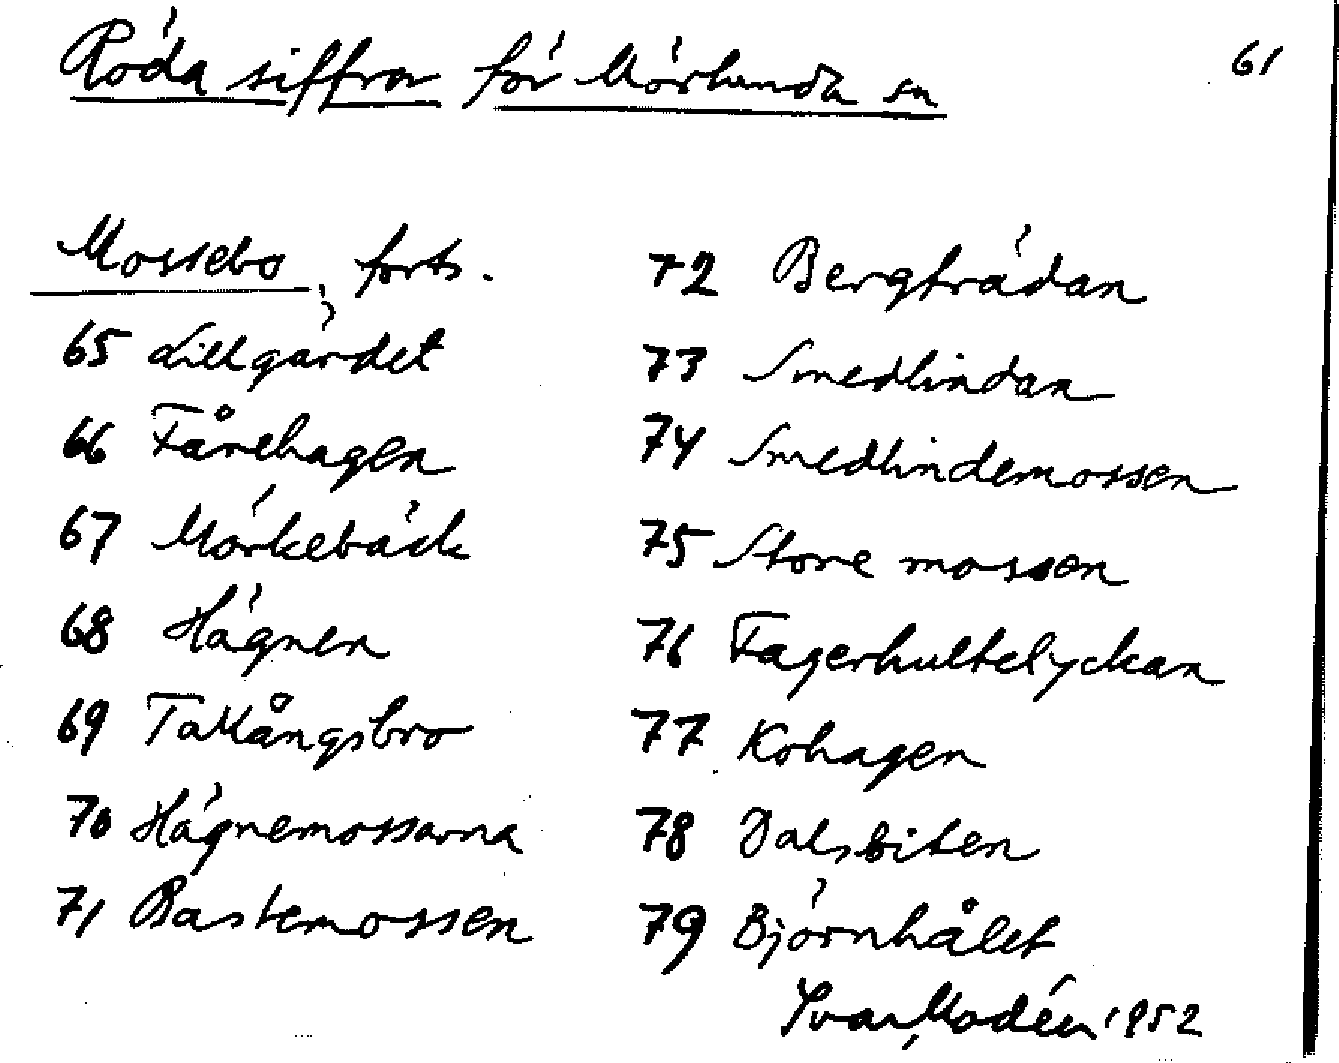 Röda siffror för Mörlunda sn
61
Mossebo, forts.
65 Lillgärdet
66 Fårehagen
67 Mörkebäck
68 Hägnen
69 Tallångsbro
70 Hägnemossarna
71 Bastemossen
72 Bergträdan
73 Smedlindan
74 Smedlindemossen
75 Store mossen
76 Fagerhultelyckan
77 Kohagen
78 Dalsbiten
79 Björnhålet
Ivar Modéer 1952